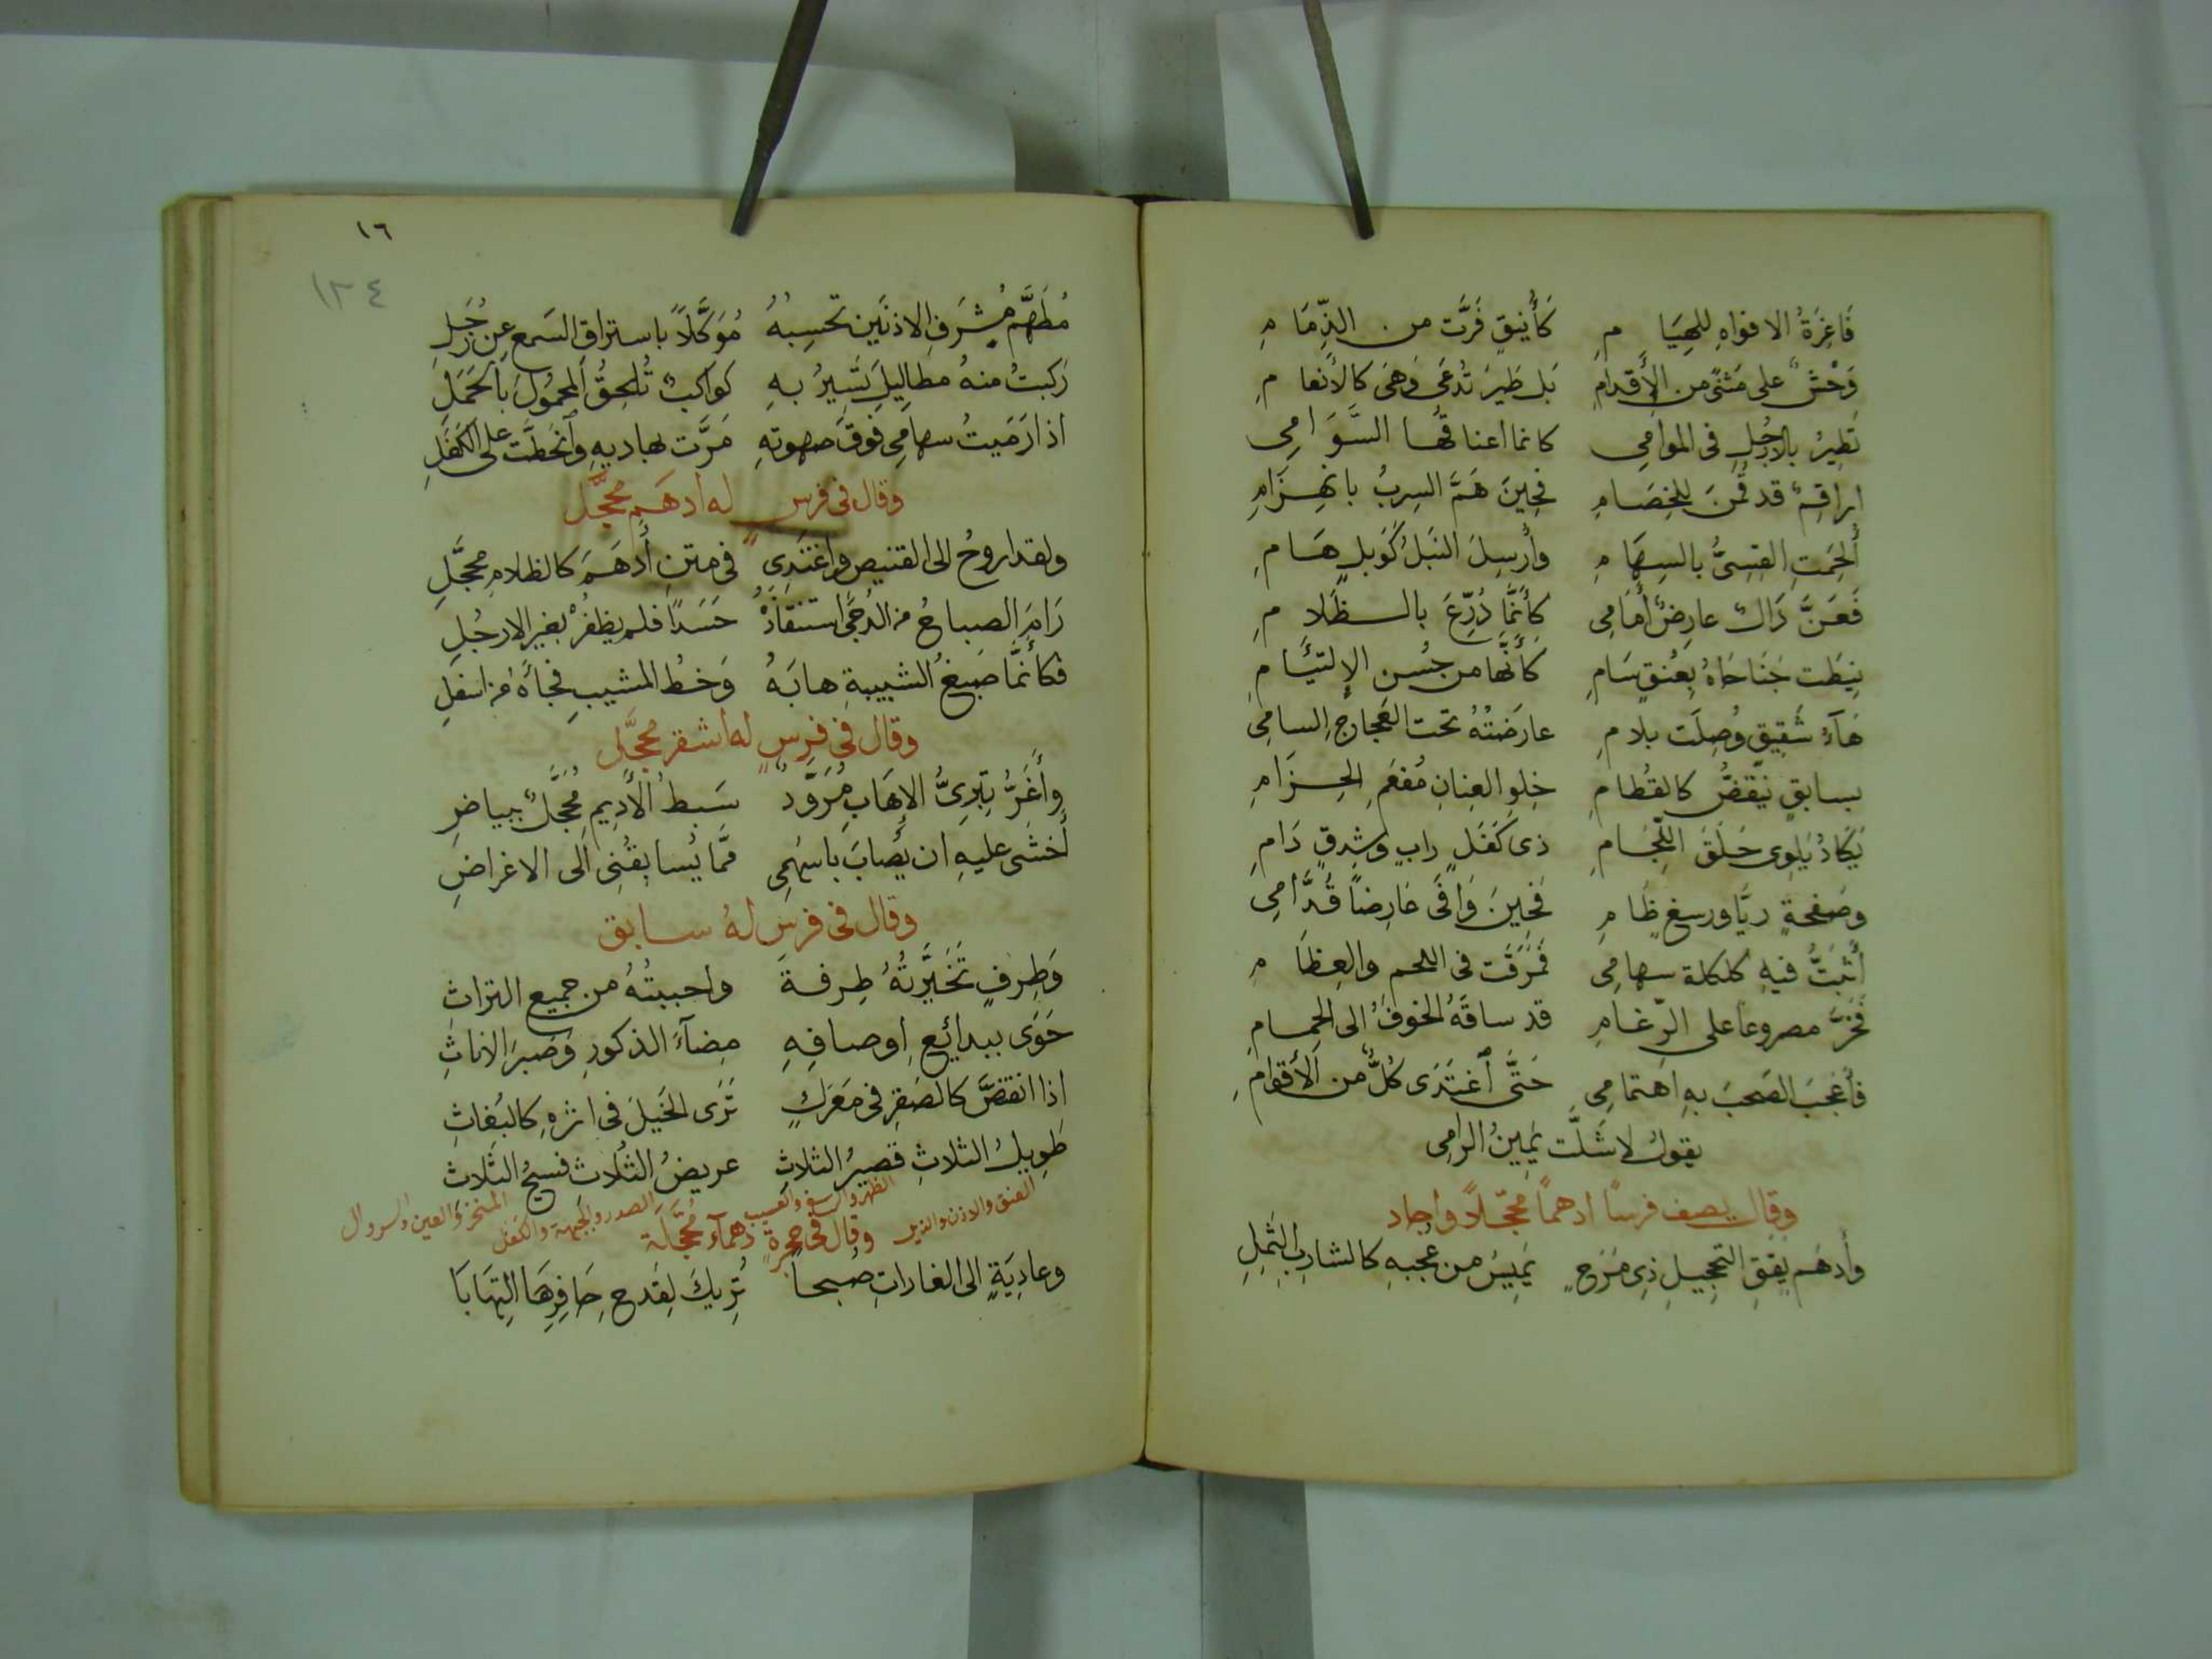 فَاغِرَةُ الافواهِ للهِيَامِ كَأَنيُقٍ فَرَّت من الذِّمَامِ
وَحْشٌ على مَثنًى من الأَقدامِ بَل طَيرَ تُدعَى وَهىَ كالأَنعامِ
تطِيرُ بالارجُلِ فى الموامِى كانما اعناقُها السَّوَامِى
اراقِمٌ قد قُمنَ للخِصَامِ فحِينَ هَمَّ السِربُ بانهِزَامِ
أُلحِمَتِ القِسِىُّ بالسِهَامِ وأُرسِلَ النَبلُ كَوَبلٍ هَامِ
فَعَنَّ رَالٌ عارِضٌ أَمَامِى كأَنَّمَا دُرِّعَ بالظَلامِ
نِيطَت جَنَاحَاهُ بِعُنقٍ سَامِ كَأَنَّها من حُسنِ الإِلتيَامِ
هَآءُ شَقِيقٍ وُصِلَت بلامِ عارَضتُهُ تحت العَجارجِ السامِى
بسابقٍ يَنقَضُّ كالقُطامِ خِلوِ العِنانِ مُفعَمِ الحِزَامِ
يَكَادُ يَلوِى حَلَقَ اللِّجَامِ ذى كَفَلٍ رابٍ وشِدقٍ دَامِ
وصَفحةٍ ريَّا ورسغٍ ظَامِ فَحِينَ وَافَى عَارِضًا قُدَّامِى
أَثبَتُّ فيهِ كلكلة سهامِى فَمَرَقَت فى اللحم والعِظَامِ
فَخَرَّ مصروعًا على الرّغامِ قد ساقَهُ الخوفُ الى الحِمامِ
فأَعجَبَ الصَحبَ بهِ اهتمامِى حَتَّى ٱغتَدَى كُلٌّ من الأَقوامِ
يقولُ لا شَلَّت يَمِينُ الرامِى
وقال يصف فرسًا ادهمًا محجّلًا واجاد
وأَدهَم يقَقِ التحجِيلِ ذِى مَرَحٍ يَمِيسُ من عُجبهِ كالشارِبِ الثَمِلِ
١٦
١٢٤
مُطَهَّم مُشرَفِ الاذنَينِ تحسِبهُ مُوَكَّلًا باستراقِ السَمعِ عن زُحَلِ
رَكبتُ منهُ مطاليلٍ تَسِيرُ بهِ كواكبٌ تُلحِقُ المحمُولَ بالحَمَلِ
اذا رَمَيتُ سهامِى فوقَ صهوتهِ مَرَّت بهاديهِ وٱنحَطَّت على الكَفَلِ
وقال فى فرس له ادهَمٍ محجَّل
ولقد اروحُ الى القنيصِ واغتَدِى فى متنِ أَدهَمَ كالظلامِ محجَّلِ
رَامَ الصباحُ من الدُجَى استنقاذَهُ حَسَدًا فلم يظفُرْ بغيرِ الارجُلِ
فكأَنَّمَا صَبغُ الشبيبةِ هابَهُ وَخطُ المشيبِ فجَأَهُ من اسفَلِ
وقال فى فرسٍ له اشقر محجَّل
وأَغَرُّ تِبرِىُّ الإِهَابِ مُوَرَّدٌ سَبطُ الأَدِيمِ مُحَجَّلٌ ببياضِ
أَخشَى عليهِ ان يُصَابَ باسهُمِى مَّما يُسابِقُنِى الى الاغراضِ
وقال فى فرسٍ لهُ سابق
وَطِرفٍ تَخَيَّرتُهُ طِرفةً واحببتُهُ من جميع التراث
حَوَى ببدائِعِ اوصافِهِ مِضآءَ الذكورِ وَصَبرَ الاناثِ
اذا انقضَّ كالصَقرِ فى مَعرَكٍ تَرَى الخَيلَ فى اثرِهِ كالبُغاثِ
طَوِيلُ الثلاثِ قصيرُ الثلاثِ عريضُ الثلاثِ فسيحُ الثلاث
العنق والاذن والذيل الظهر والرسغ والعسيب الصدر والجبهة والكفل المنخر والعين والسروال
وقال فى حجرةٍ دهمآءَ مُحجَّلَة
وعادِيَةٍ الى الغاراتِ ضَبحاً تُرِيكَ لِقَدحِ حَافِرِهَا الِتهَابَا